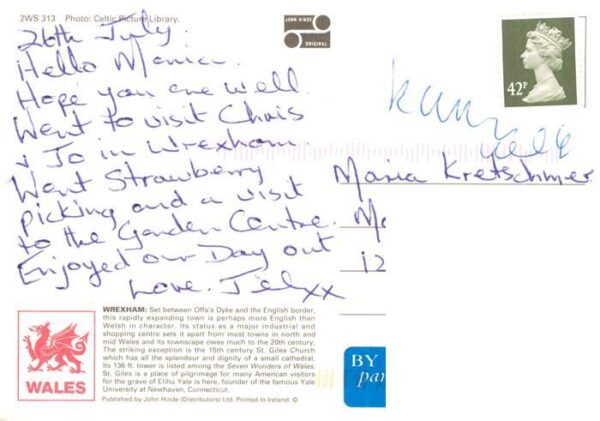 2WS 313 Photo: Celtic Picture Library.
JOHN HINDE
ORIGINAL
42P
26th July.
Hello Maria.
Hope you are well.
Went to visit Chris
+ Jo in Wrexham.
Went Strawberry
picking and a visit
to the Garden Centre.
Enjoyed our Day out
Love. xx
Maria Kretschmer
12
WREXHAM: Set between Offa's Dyke and the English border,
this rapidly expanding town is perhaps more English than
Welsh in character. Its status as a major industrial and
shopping centre sets it apart from most towns in north and
mid Wales and its townscape owes much to the 20th century.
The striking exception is the 15th century St. Giles Church
which has all the splendour and dignity of a small cathedral.
Its 136 ft. tower is listed among the Seven Wonders of Wales.
St. Giles is a place of pilgrimage for many American visitors
for the grave of Elihu Yale is here, founder of the famous Yale
University at Newhaven, Connecticut.
Published by John Hinde (Distributors) Ltd, Printed in Ireland. ©
WALES
BY
par